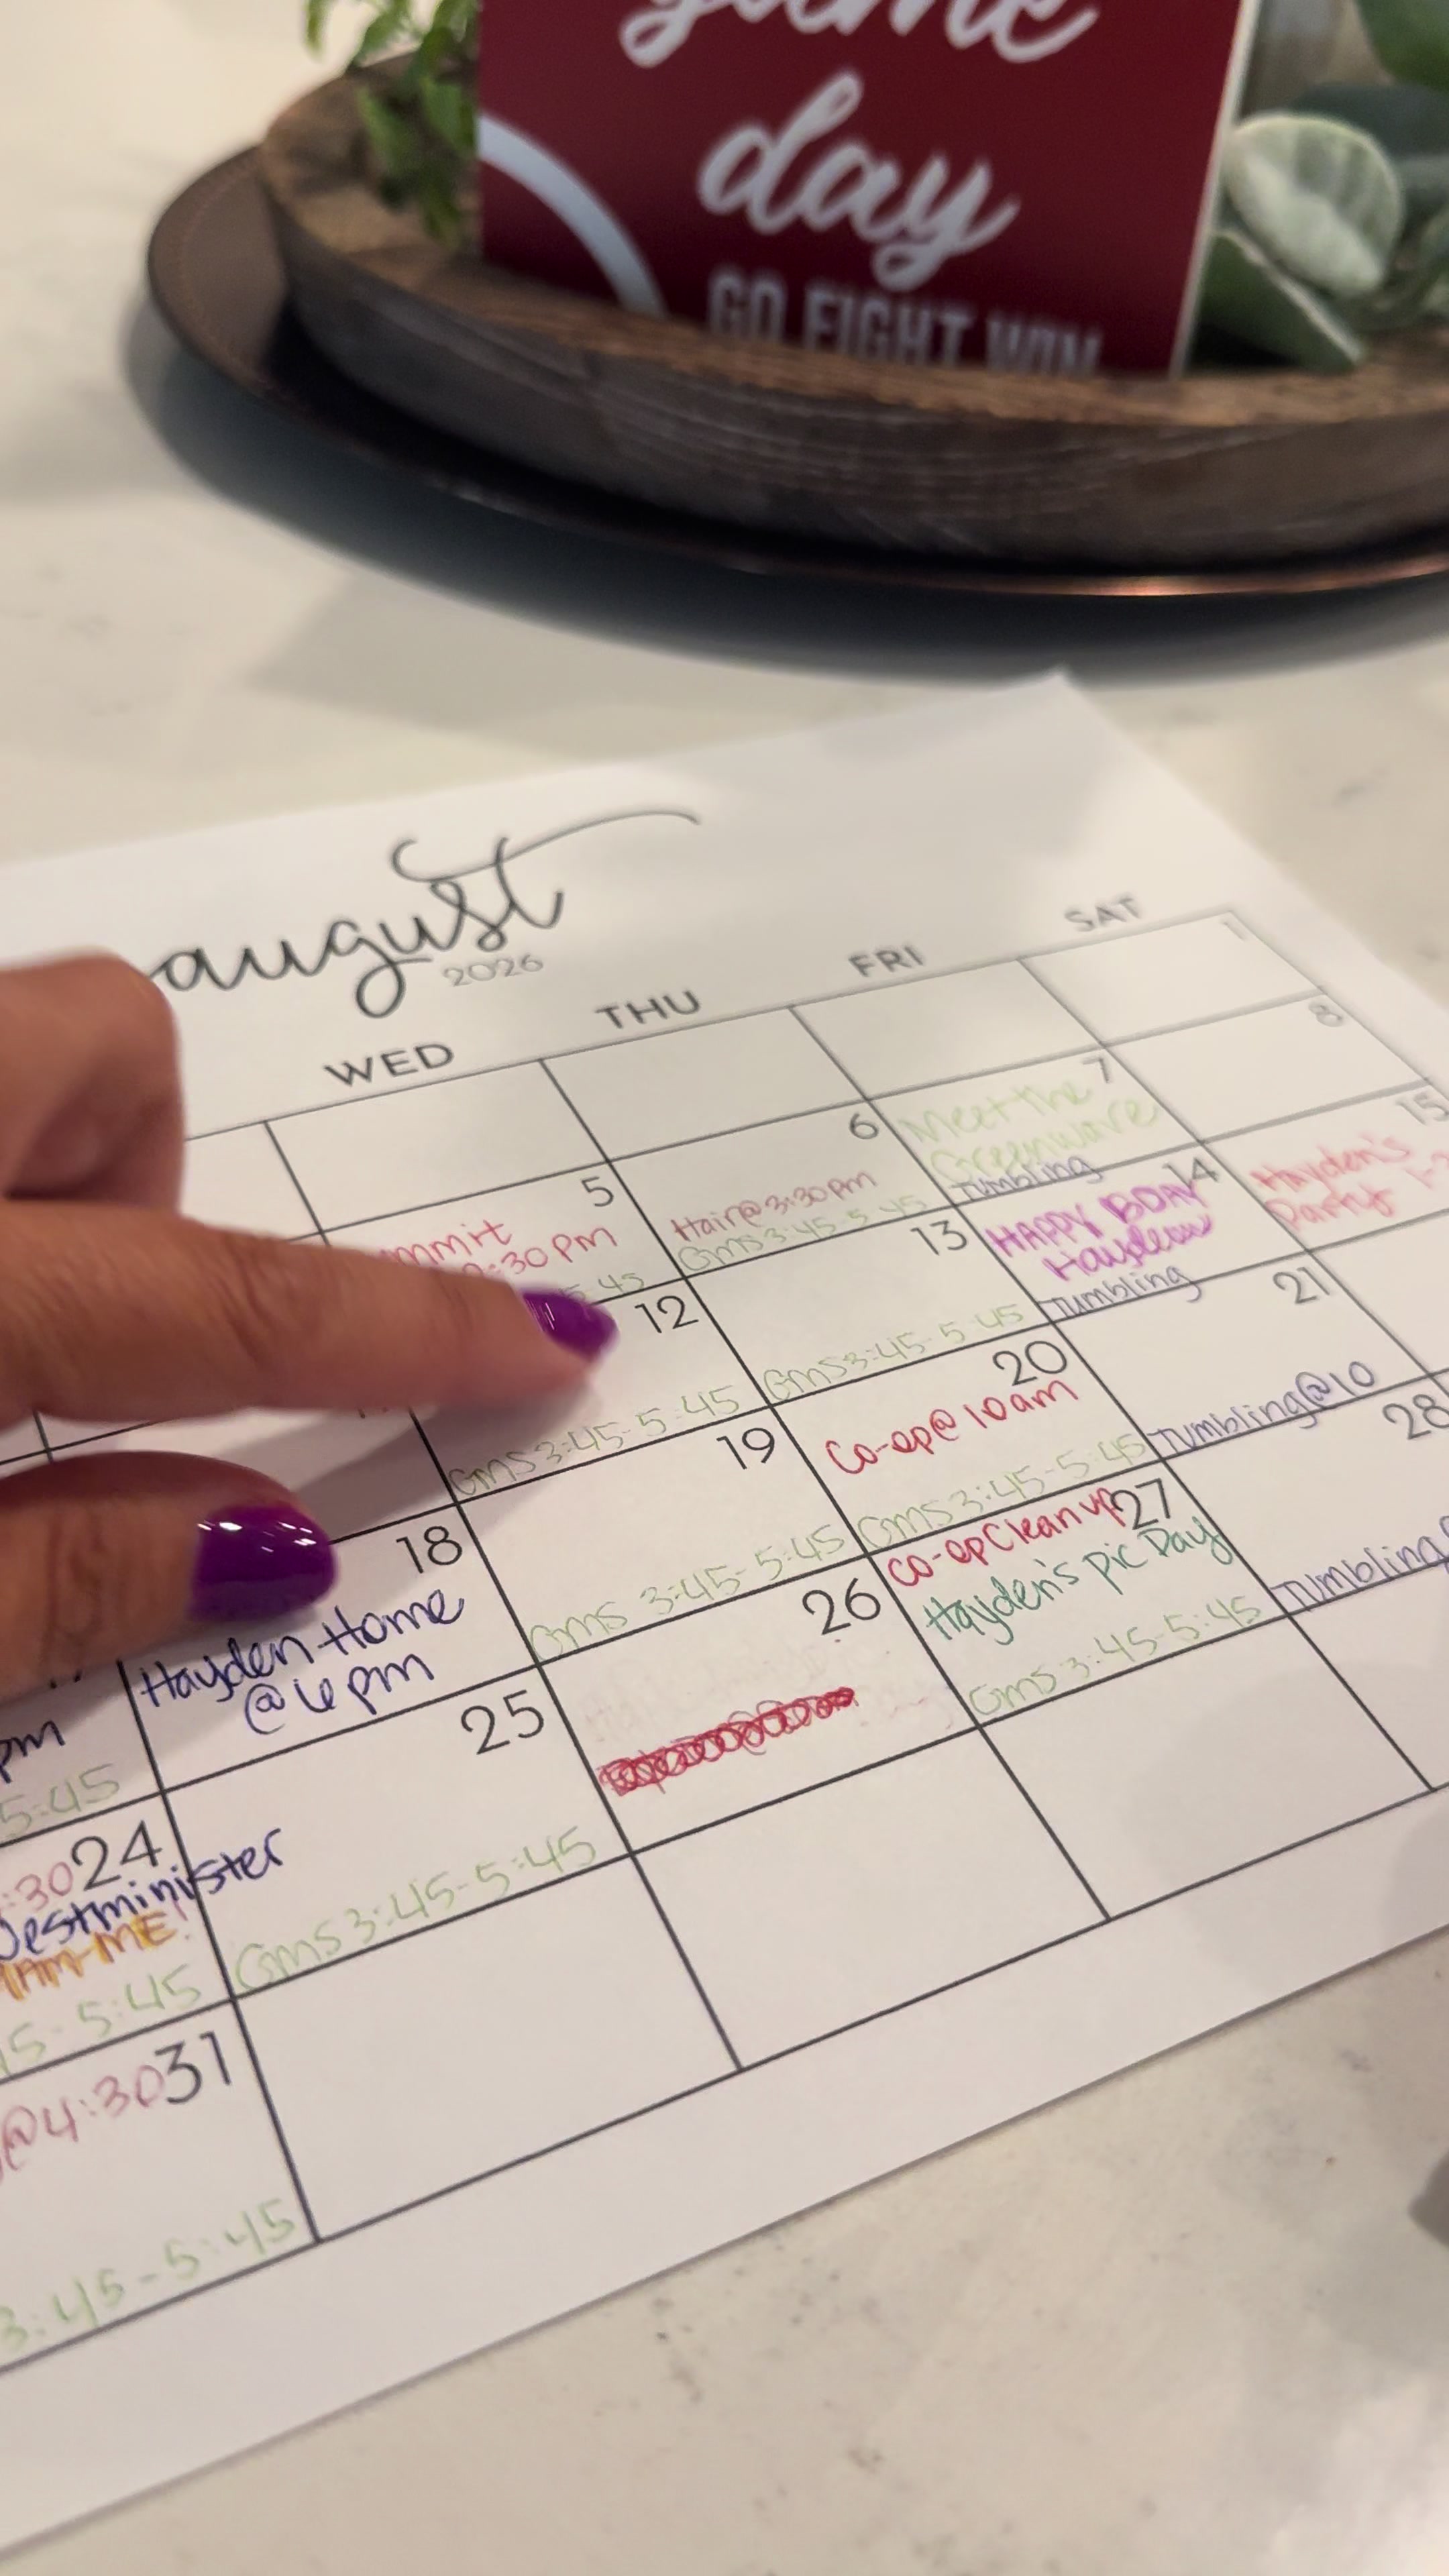 game
day
GO FIGHT WIN
august
2026
WED THU FRI SAT
1
5
mmit
:30 pm
5:45
6
Hair@3:30pm
Gms 3:45-5:45
7
Meet the
Greenwave
Tumbling
8
12
Gms 3:45-5:45
13
Gms 3:45-5:45
14
HAPPY BDAY
Hayden
Tumbling
15
Hayden's
Party 1-
pm
5:45
18
Hayden Home
@6pm
19
Gms 3:45-5:45
20
Co-op@10am
Gms 3:45-5:45
21
Tumbling@10
:30
24
Westminister
AM-ME!
45-5:45
25
Gms 3:45-5:45
26
27
Co-op Clean up
Hayden's Pic Day
Gms 3:45-5:45
28
Tumbling@
@4:30
31
3:45-5:45